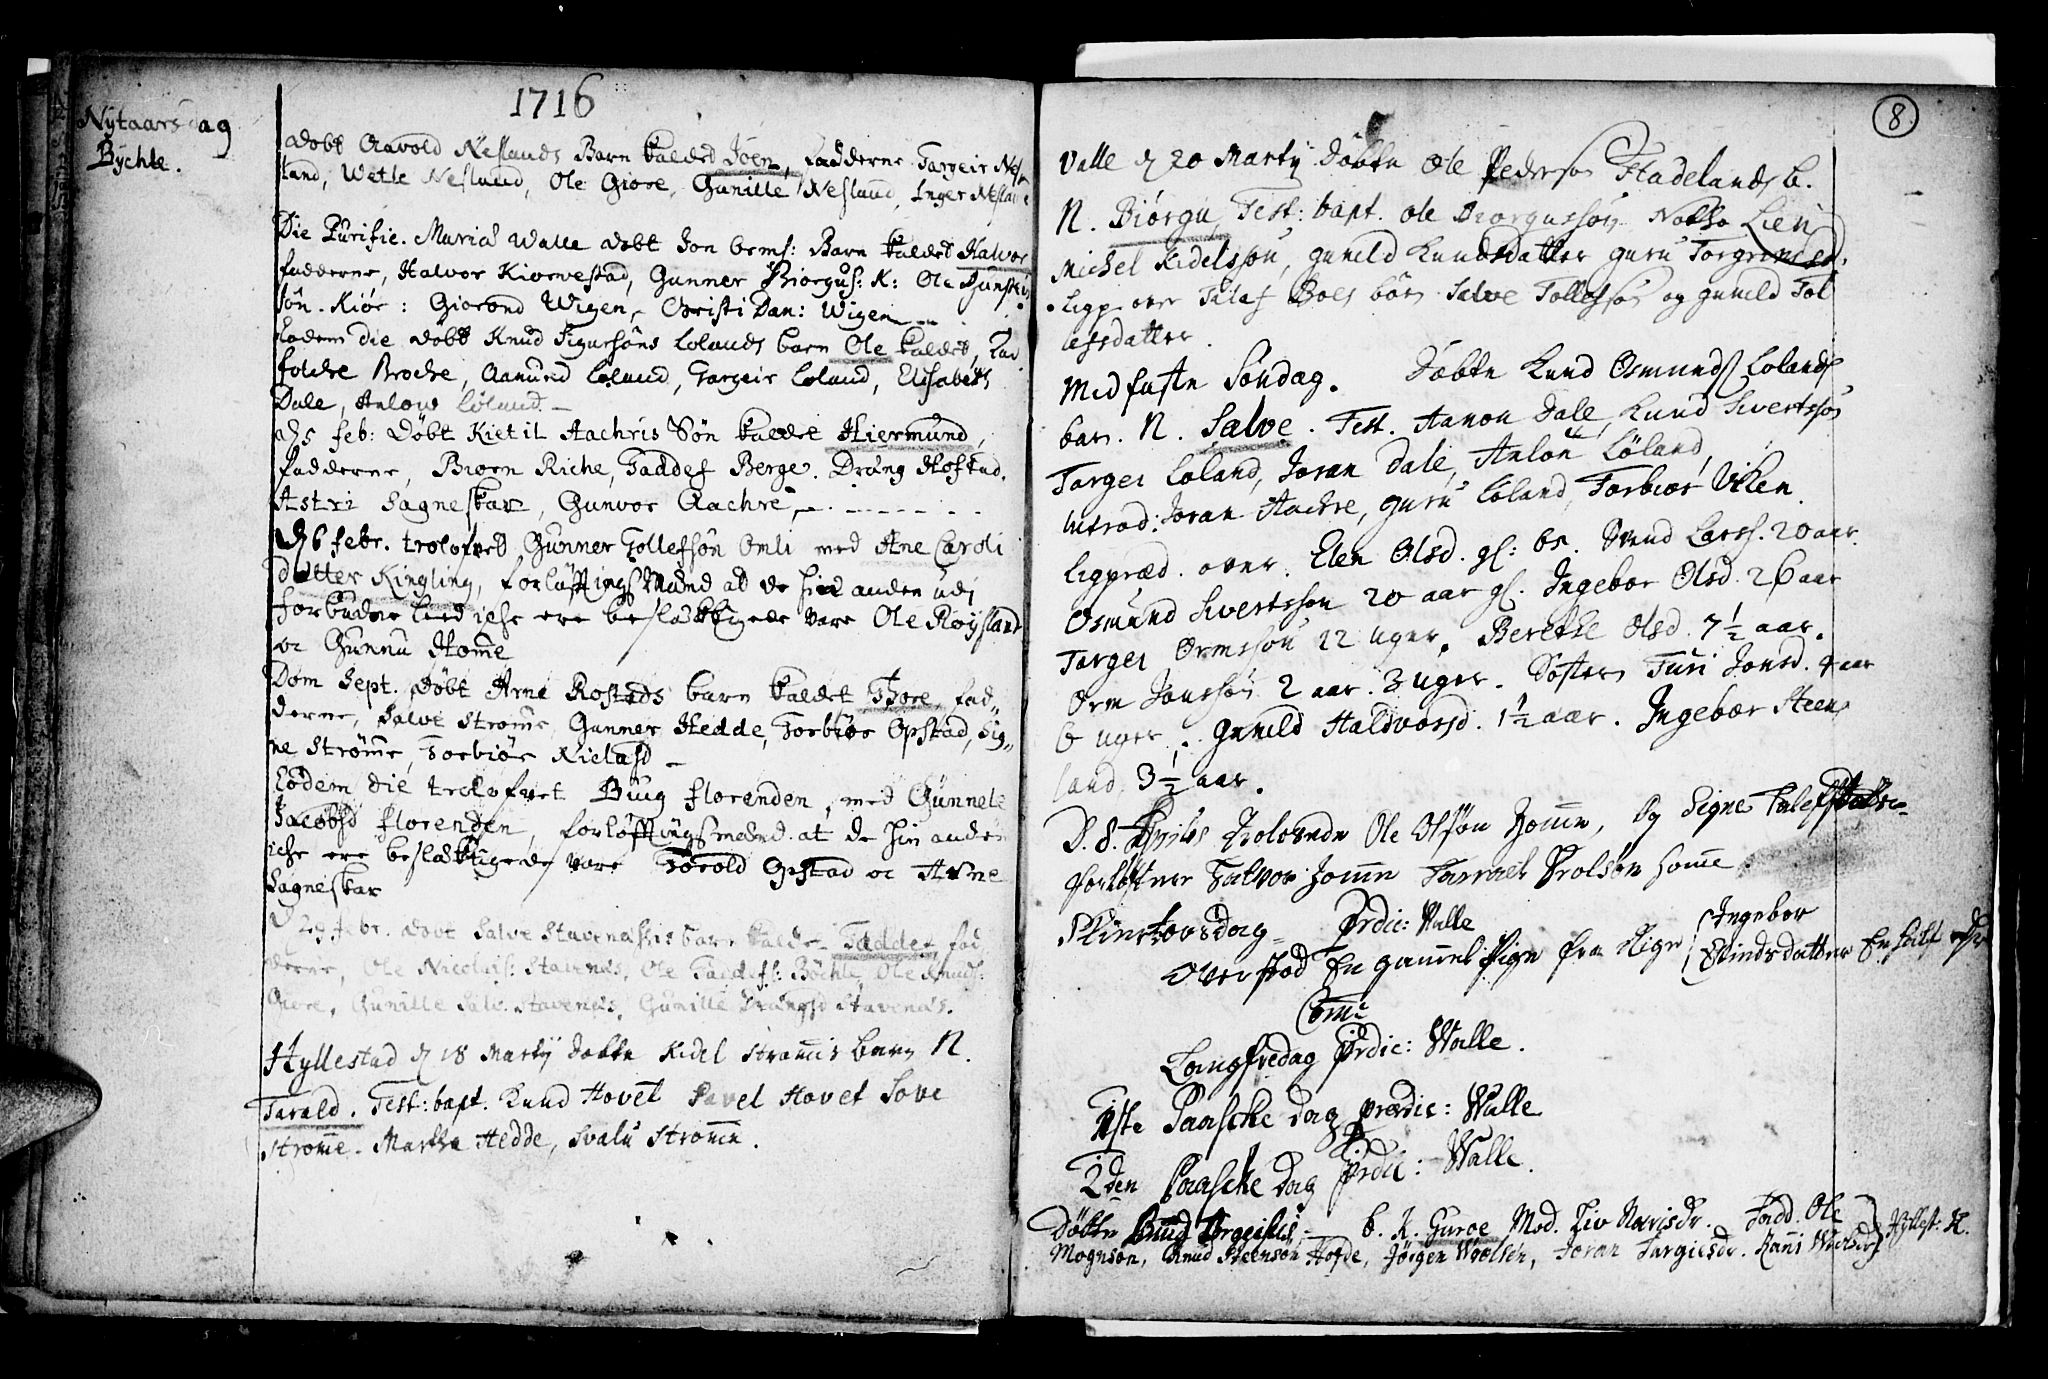 1716
Nytaarsdag
Bychle.
Døbt Aavold Neslands Barn kaldet Joen, Fadderne Targeir Nes
land, Wetle Nesland, Ole Giore, Gunille Nesland, Inger Nesland
Die Purific. Mariæ Walle døbt Jon Orms: Barn kaldet Halvor
fadderne, Halvor Kirvestad, Gunner Biorgus: K: Ole Gunsteins
søn. Kiør: Giorond Wigen, Christi Dan: Wigen
Eodem die døbt Knud Sigursøns Lolands barn Ole kaldet, Fad
Folche Broche, Aamund Loland, Targeir Loland, Elisabeth
Dale, Anlow Loland
d 5 feb: døbt Kietil Aachris Søn kaldet Hiermund,
fadderne, Biorn Riche, Taddef Berge. Dräng Hofstad.
Astri Sagneskar, Gunvor Aachre,
d 6 febr. trolofvet Gunner Tollefsøn Omli med Ane Caroli
datter Kingling, forløftingsMænd at de hin anden udi
forbudne Leed iche ere beslægtigede vare Ole Røysland
oc Gunnu Homme
Dom Sept. døbt Arne Rostads barn kaldet Thore, fad
derne, Salve Strømme, Gunner Hedde, Torbiør Opstad, Sig
ne Strømme, Torbiør Nielasd
Eodem die trolofvet Biug florenden, med Gunnele
Jacobsd florenden, forløftingsmænd at de hin anden
iche ere beslægtigede vare Torold Opstad oc Arne
Sagneskar
29 febr. døbt Salve Stavenæssis barn kaldet Taddef, fad
derne, Ole Nicolais: Stavenæs, Ole Taddefs: Bøchle, Ole Knuds:
Giore, Gunille Salv: Stavenæs, Gunille Drängsd Stavenæs.
Hyllestad d 18 Martij døbte Kidel Strømis barn N.
Tarald. Test: bapt. Knud Hovet Pavel Hovet Sove
Strømme. Martha Hedde, Svalu Strømme.
8
Valle d 20 Martij døbte Ole Pedersøn Hadelands b.
N. Biørgu, Test: bapt. Ole Biorgussøn Lien
Michel Kidelssøn, Gunild Knudsdatter Guru Torgrimsd.
Ligp: over Boes børn Salve Tollefsøn og Gunild Tol
lefsdatter.
Midfaste Søndag. Døbte Knud Osmunds Lolands
barn. N. Salve. Test. Aanon Dale, Knud Sivertssøn
Targei Loland, Joran Dale, Anlou Løland,
Introd: Joran Aachre, Guru Loland, Torbior Viken.
Ligpræd. over. Elen Olsd. gl: 65. Svend Larss. 20 aar.
Osmund Sivertssøn 20 aar gl. Ingebor Olsd. 26 aar
Targei Ormssøn 22 uger. Berethe Olsd. 7½ aar.
Orm Jonssøn 2 aar. 3 uger. Søster Turi Jonsd. 9 aar
6 uger. Gunild Haldvorsd. 1½ aar. Ingebor Steens
land 3½ aar.
D. 8. Aprilis trolovede Ole Olsøn Homme, Og Signe
forløftere Halvor Homme Tarald Homme
Skiertorsdag Prdic: Walle
Overstod En gammel Pige fra Rige Ingebor
Svindsdatter
Com:
Langfredag Prdic: Walle.
1ste Paaschedag prædic: Walle
2den Paaschedag Prdic: Walle.
Døbte Knud Torgeisis b. K. Guroe Mod. Liv Navisdr. Fadd. Ole
Mognsøn, Knud Steensøn Hofde, Jörgen Woelsen, Joran Targiesdr. Hyllest: K.